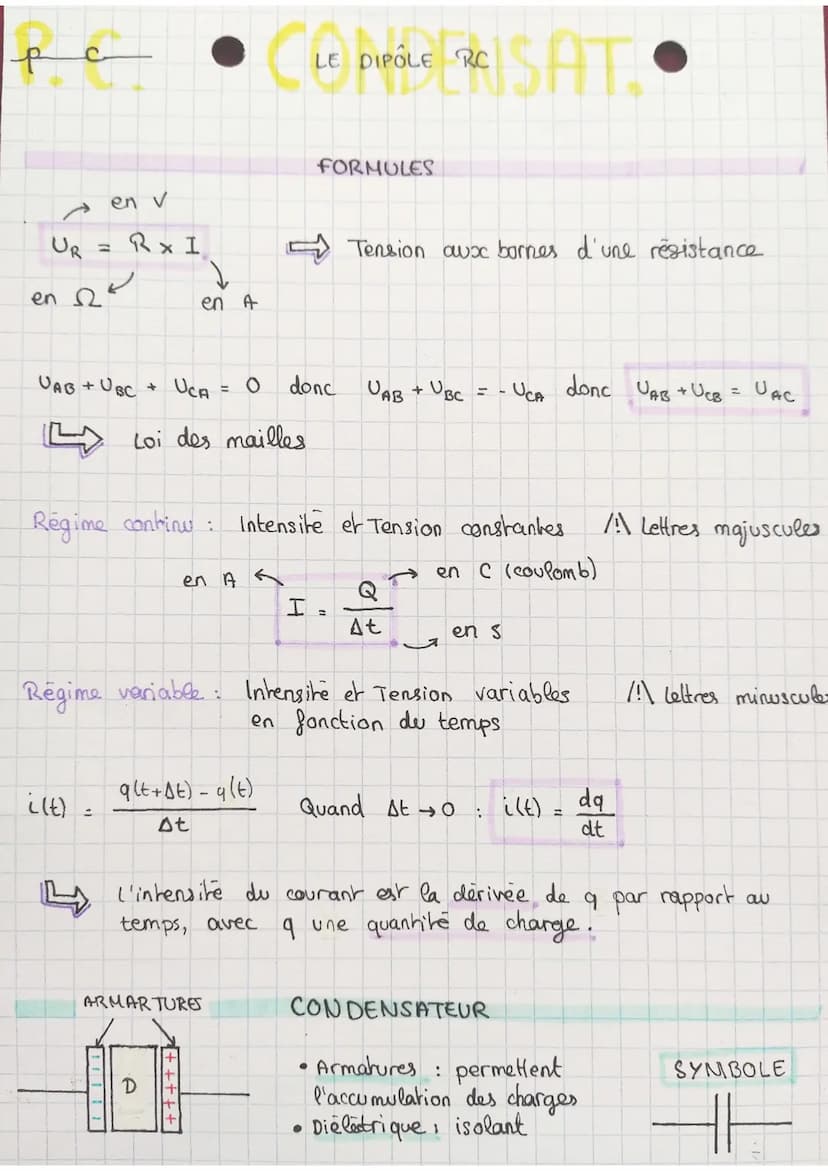 P.C. • CONDENSAT. •
p c LE DIPÔLE RC
FORMULES
en V
UR = R x I ⇒ Tension aux bornes d'une résistance
en Ω en A
UAB + UBC + UCA = 0 donc UAB + UBC = - UCA donc UAB + UCB = UAC
Loi des mailles
Régime continu : Intensité et Tension constantes /!\ Lettres majuscules
en A en C (coulomb)
I = Q/Δt
en s
Régime variable : Intensité et Tension variables /!\ lettres minuscule
en fonction du temps
i(t) = q(t+Δt) - q(t)/Δt Quand Δt → 0 : i(t) = dq/dt
L'intensité du courant est la dérivée de q par rapport au
temps, avec q une quantité de charge.
ARMARTURES CONDENSATEUR
• Armatures : permettent SYMBOLE
l'accumulation des charges
D
• Diélétrique : isolant